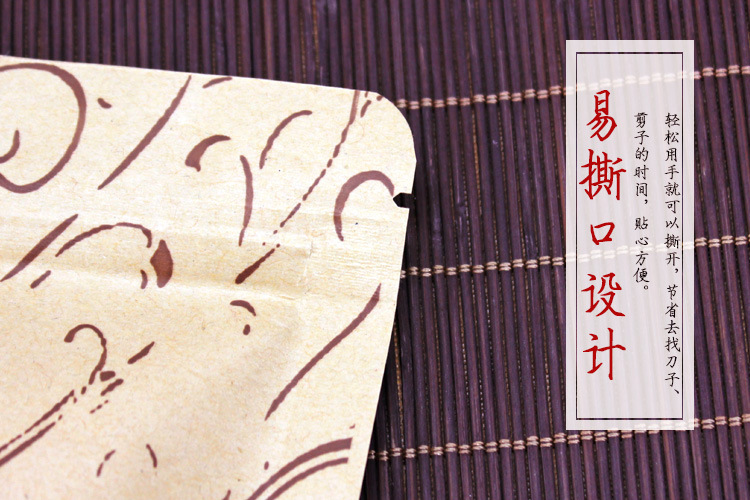 易撕口设计
轻松用手就可以撕开，节省去找刀子、
剪子的时间，贴心方便。